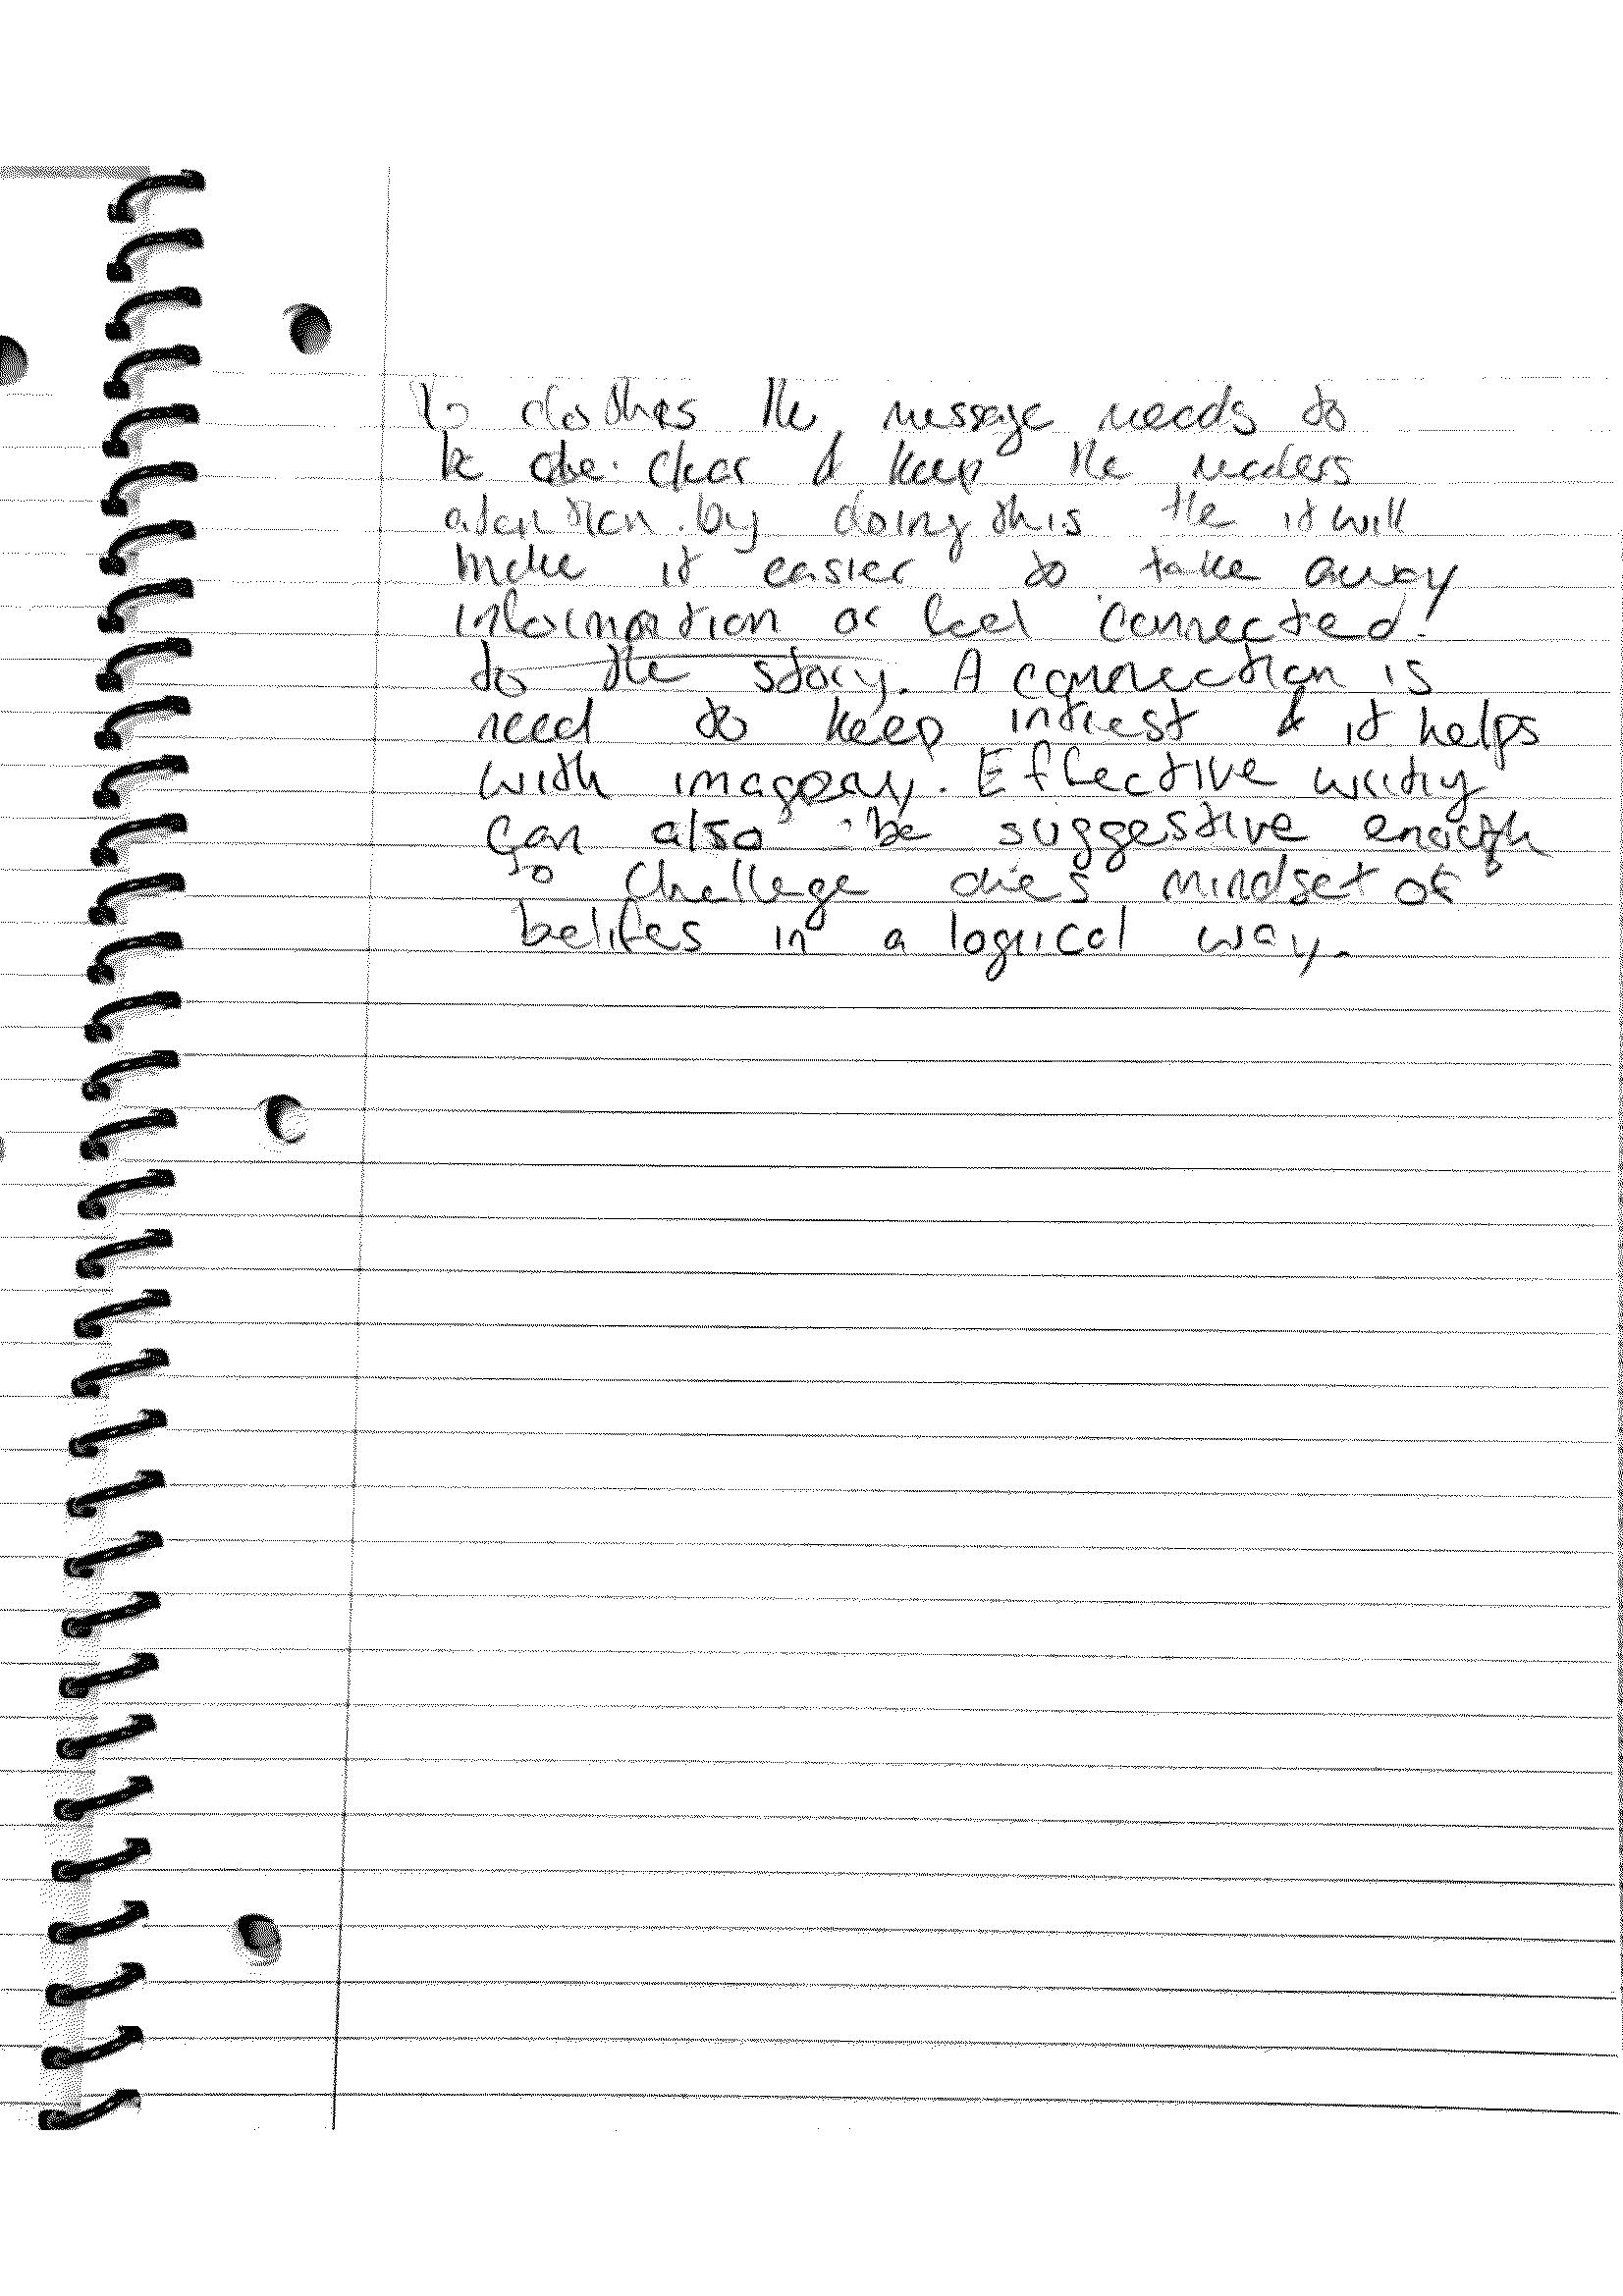 To do this the message needs to
be clear & keep the readers
atention. by doing this the it will
make it easier to take away
information or feel connected!
to the story. A connection is
need to keep intrest & it helps
with imagery. Effective writing
can also be suggestive enough
to challege ones mindset or
belifes in a logical way.